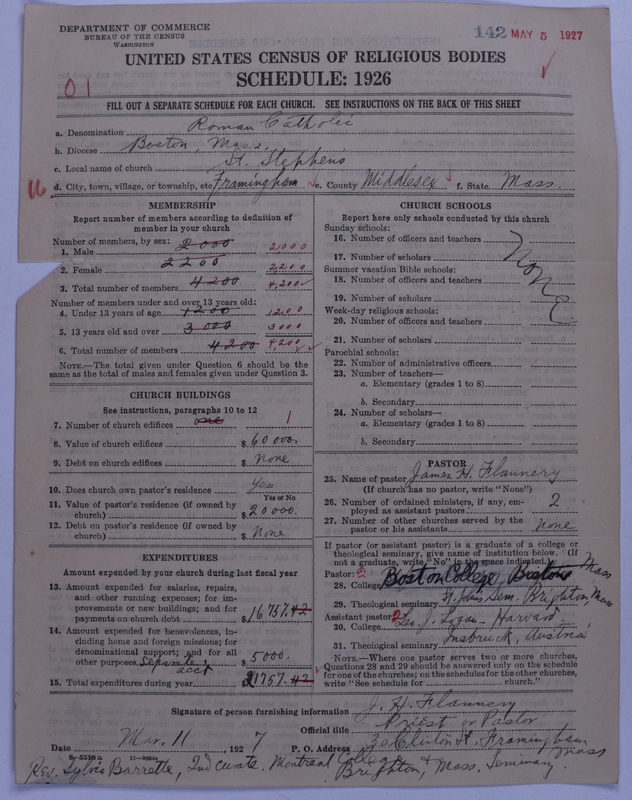 DEPARTMENT OF COMMERCE
BUREAU OF THE CENSUS
WASHINGTON
142 MAY 5 1927
UNITED STATES CENSUS OF RELIGIOUS BODIES
SCHEDULE: 1926
01
FILL OUT A SEPARATE SCHEDULE FOR EACH CHURCH. SEE INSTRUCTIONS ON THE BACK OF THIS SHEET
a. Denomination Roman Catholic
b. Diocese Boston, Mass.
c. Local name of church St. Stephens
16 d. City, town, village, or township, etc. Framingham e. County Middlesex f. State Mass.
MEMBERSHIP
Report number of members according to definition of
member in your church
Number of members, by sex:
1. Male 2000 2000
2. Female 2200 2,200
3. Total number of members 4200 4,200
Number of members under and over 13 years old:
4. Under 13 years of age 1200 1200
5. 13 years old and over 3000 3000
6. Total number of members 4200 4,200
NOTE.—The total given under Question 6 should be
same as the total of males and females given under Question 3.
CHURCH BUILDINGS
See instructions, paragraphs 10 to 12
7. Number of church edifices one 1
8. Value of church edifices $60000.
9. Debt on church edifices $ None
10. Does church own pastor's residence Yes
Yes or No
11. Value of pastor's residence (if owned by
church) $20000.
12. Debt on pastor's residence (if owned by
church) $ None
EXPENDITURES
Amount expended by your church during last fiscal year
13. Amount expended for salaries, repairs,
and other running expenses; for im-
provements or new buildings; and for
payments on church debt $16757.42
14. Amount expended for benevolences, in-
cluding home and foreign missions; for
denominational support; and for all
other purposes. Separate acct $5000.
15. Total expenditures during year $21757.42
CHURCH SCHOOLS
Report here only schools conducted by this church
Sunday schools:
16. Number of officers and teachers
None
17. Number of scholars
Summer vacation Bible schools:
18. Number of officers and teachers
19. Number of scholars
Week-day religious schools:
20. Number of officers and teachers
21. Number of scholars
Parochial schools:
22. Number of administrative officers
23. Number of teachers—
a. Elementary (grades 1 to 8)
b. Secondary
24. Number of scholars—
a. Elementary (grades 1 to 8)
b. Secondary
PASTOR
25. Name of pastor James H. Flannery
(If church has no pastor, write "None")
26. Number of ordained ministers, if any, em-
ployed as assistant pastors 2
27. Number of other churches served by the
pastor or his assistants None
If pastor (or assistant pastor) is a graduate of a college or
theological seminary, give name of institution below. (If
not a graduate, write "No" in the space indicated.)
Pastor: 2
28. College Boston College, Boston Mass
29. Theological seminary St. Johns Sem. Brighton, Mass
Assistant pastor: 2
30. College Leo J. Logan - Harvard.
31. Theological seminary Insbruck, Austria
NOTE.—Where one pastor serves two or more churches,
Questions 28 and 29 should be answered only on the schedule
for one of the churches; on the schedules for the other churches,
write "See schedule for church."
Signature of person furnishing information J. H. Flannery
Official title Priest or Pastor
Date Mar. 11, 1927 P. O. Address 20 Clinton St. Framingham Mass
8—5516a
Rev. Sylvio Barrette, 2nd curate. Montreal College &
Brighton, Mass. Seminary.